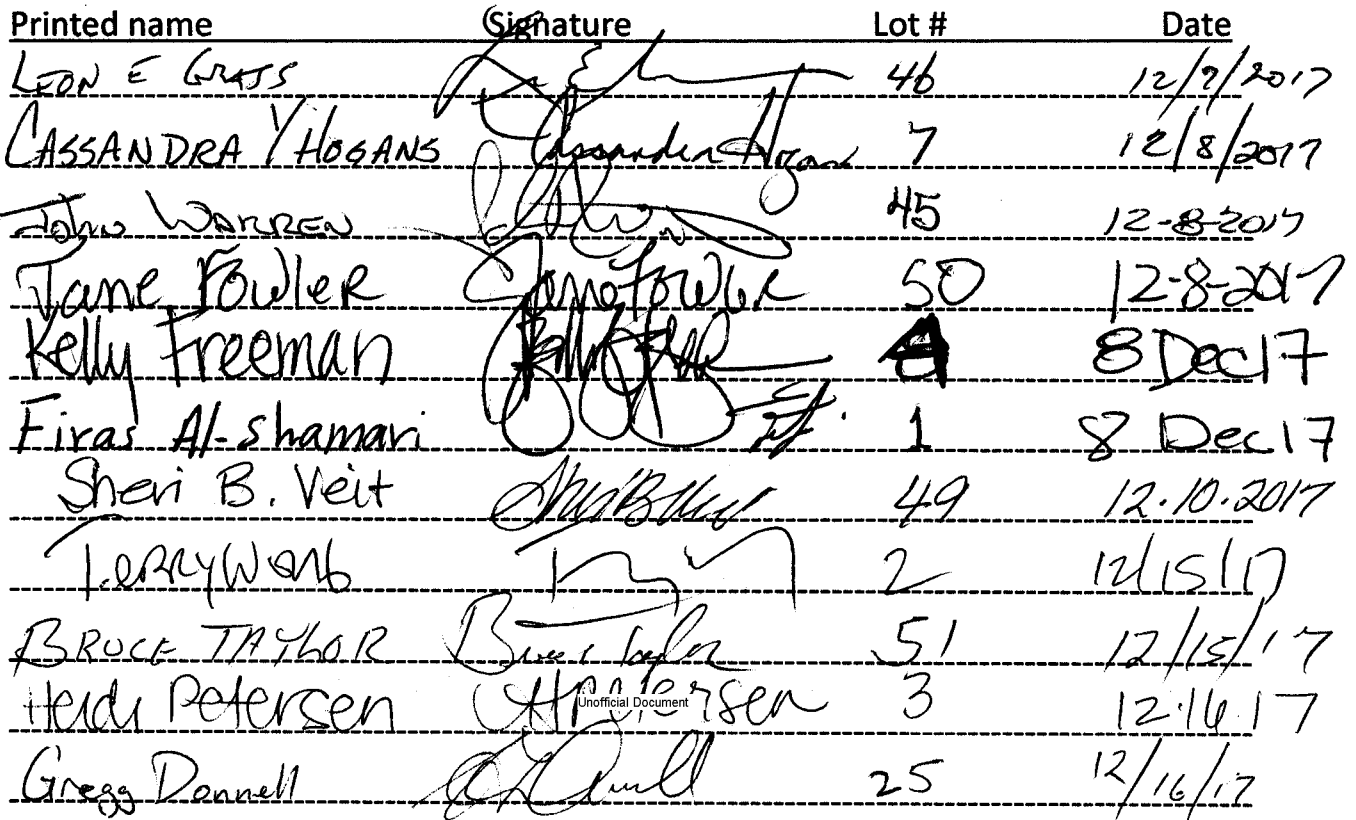 Printed name Signature Lot # Date
LEON E GRASS 46 12/7/2017
CASSANDRA Y HOGANS Cassandra Hogans 7 12/8/2017
JOHN WARREN 45 12-8-2017
Jane Fowler Jane Fowler 50 12-8-2017
Kelly Freeman 8 Dec 17
Firas Al-shamari 1 8 Dec 17
Sheri B. Veit Sheri B Veit 49 12.10.2017
TERRY 2 12/15/17
BRUCE TAYLOR Bruce Taylor 51 12/15/17
Heidi Petersen 3 12.16.17
Unofficial Document
Gregg Donnell 25 12/16/17